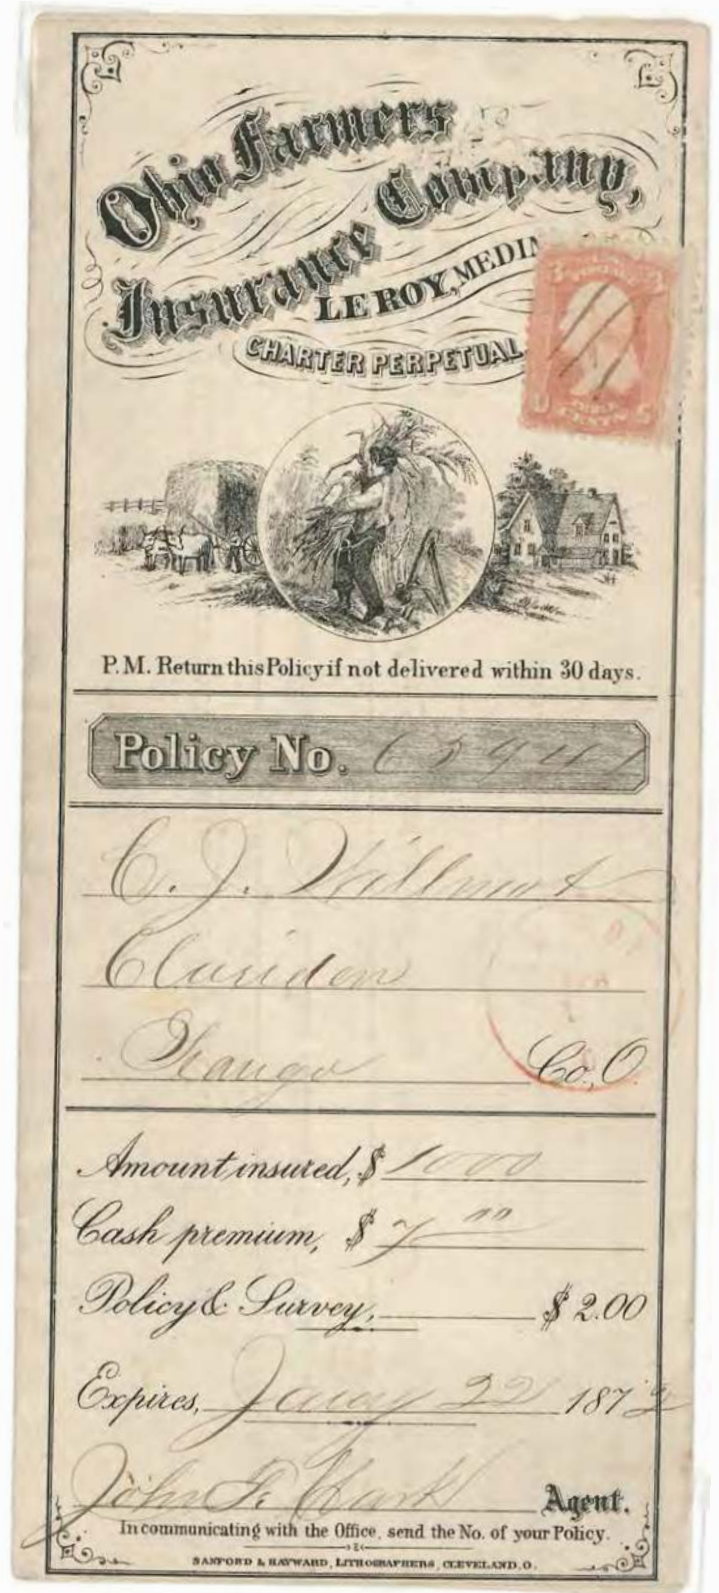 Ohio Farmers
Insurance Company,
LE ROY, MEDIN
CHARTER PERPETUAL
THREE
CENTS
P.M. Return this Policy if not delivered within 30 days.
Policy No. 65941
C. J. Willmot
Claridon
Geauga Co, O.
Amount insured, $ 1000
Cash premium, $ 7 00
Policy & Survey, $ 2.00
Expires, Jany 22 1872
John F. Clark Agent.
In communicating with the Office, send the No. of your Policy.
SANFORD & HAYWARD, LITHOGRAPHERS, CLEVELAND, O.